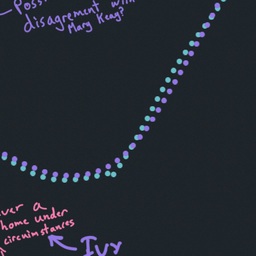 disagreement with
Mary Kay?
over a
home under
circumstances
Ivy